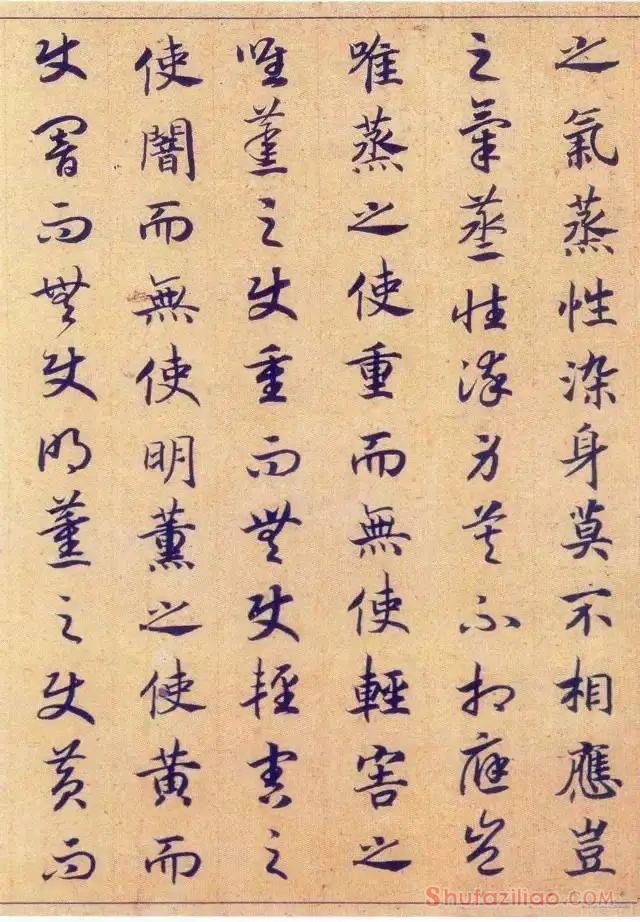 之氣蒸性染身莫不相應豈
之氣蒸性染身莫不相應豈
唯蒸之使重而無使輕害之
唯蒸之使重而無使輕害之
使闇而無使明薰之使黄而
使闇而無使明薰之使黄而
Shufaziliao.COM